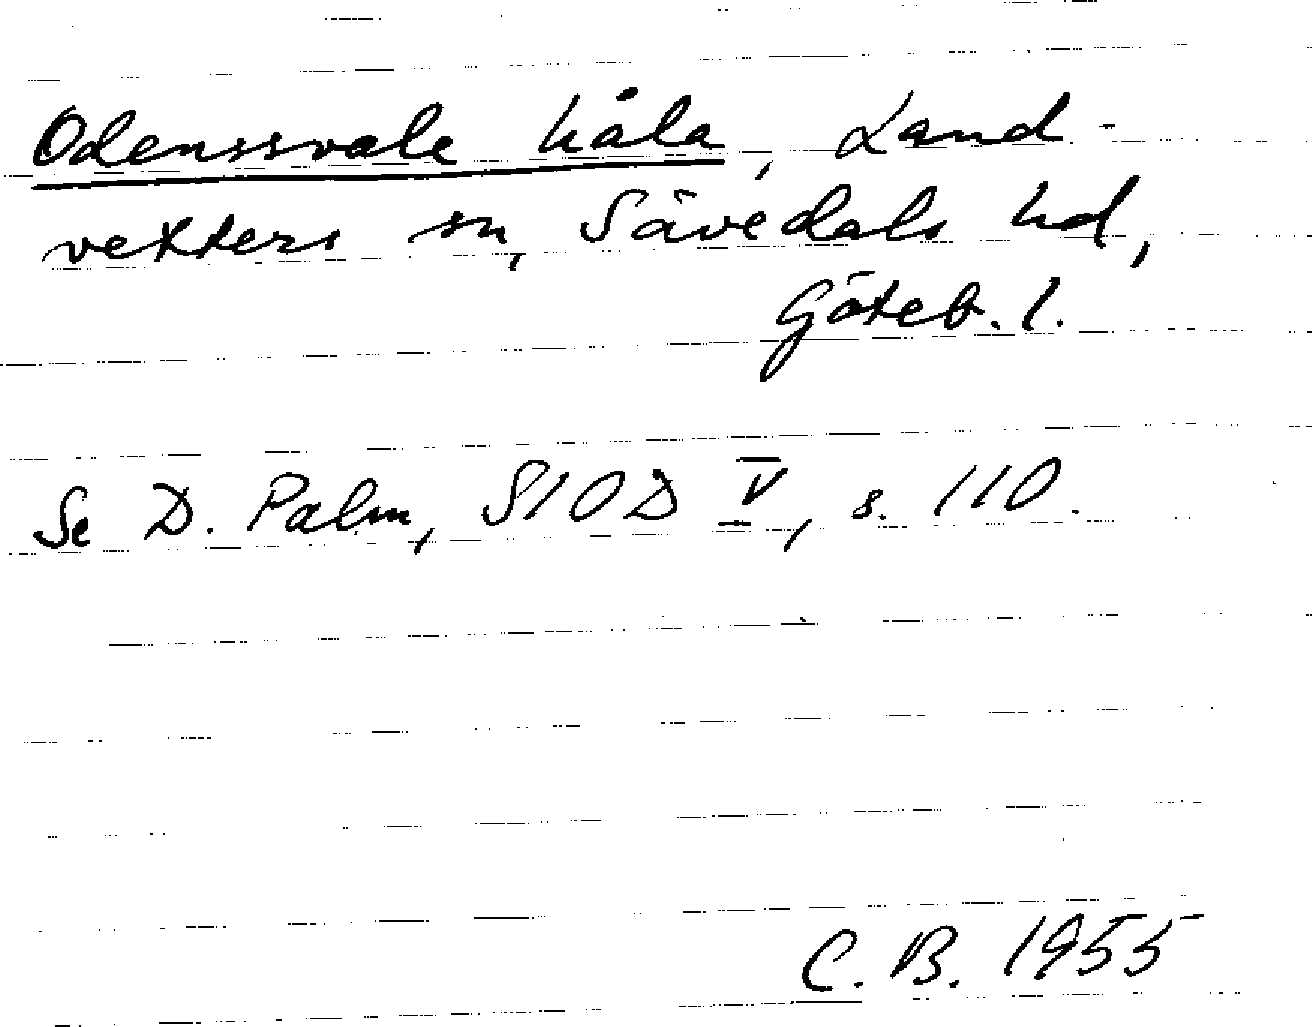 Odenssvale håla, Land-
vetters sn, Sävedals hd,
Göteb. l.
Se D. Palm, SIOD V, s. 110.
C. B. 1955